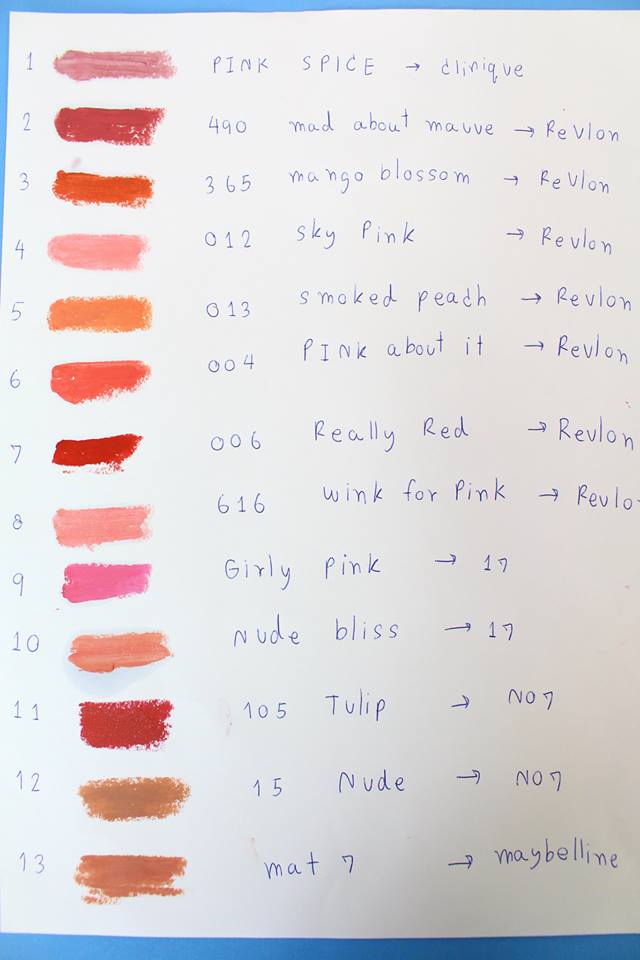 1 PINK SPICE → clinique
2 490 mad about mauve → Revlon
3 365 mango blossom → Revlon
4 012 sky Pink → Revlon
5 013 smoked peach → Revlon
6 004 PINK about it → Revlon
7 006 Really Red → Revlon
8 616 wink for Pink → Revlo
9 Girly Pink → 17
10 Nude bliss → 17
11 105 Tulip → NO7
12 15 Nude → NO7
13 mat 7 → maybelline